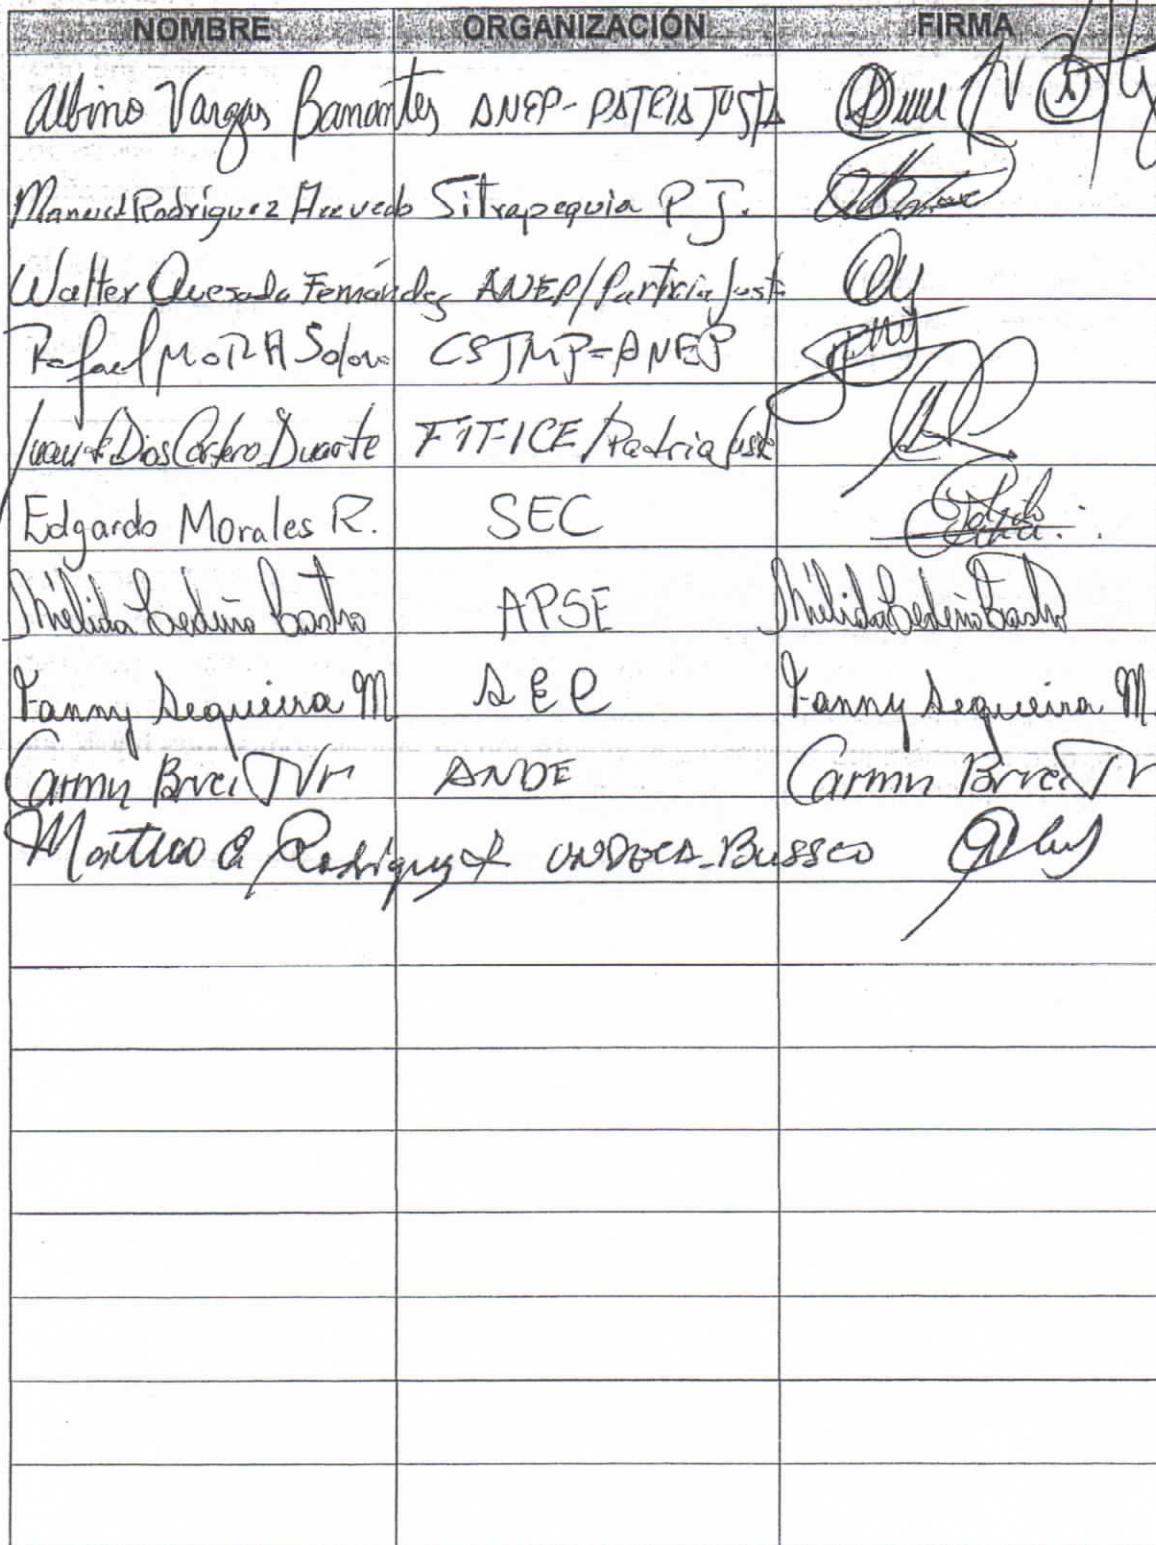 NOMBRE ORGANIZACIÓN FIRMA
Albino Vargas Barrantes ANEP-PATRIA JUSTA
Manuel Rodríguez Acevedo Sitrapequia P J.
Walter Quesada Fernández ANEP/Patria Justa
Rafael MORA Solano CSJMP-ANEP
Juan de Dios Cordero Duarte FIT-ICE/Patria Justa
Edgardo Morales R. SEC
Mélida Cedeño Castro APSE Mélida Cedeño Castro
Yanny Sequeira M SEC Yanny Sequeira M.
Carmen ANDE Carmen
Rodríguez UNDECA-BUSSCO